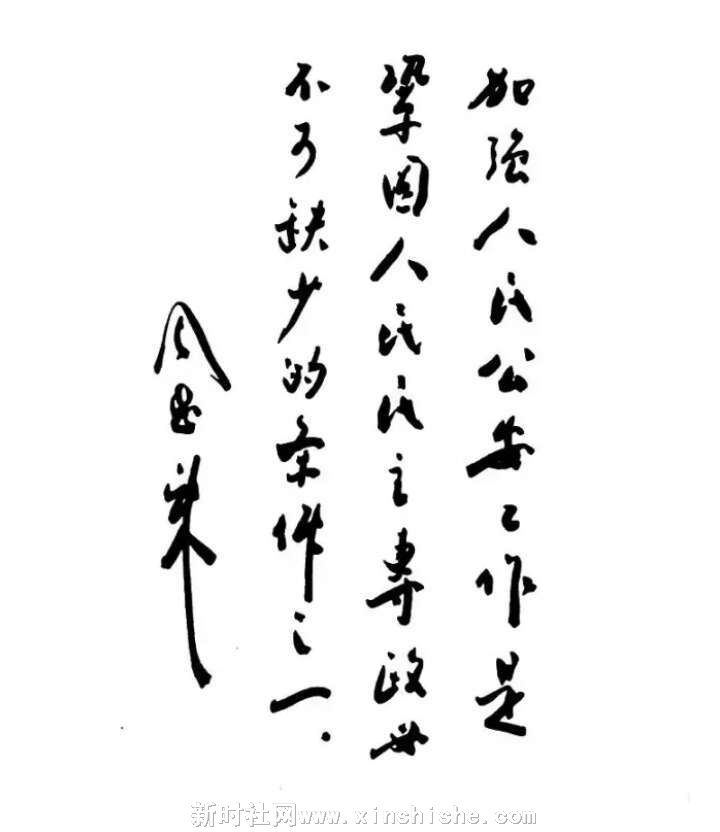 加强人民公安工作是
鞏固人民民主專政必
不可缺少的条件之一.
周恩来
新时社网www.xinshishe.com